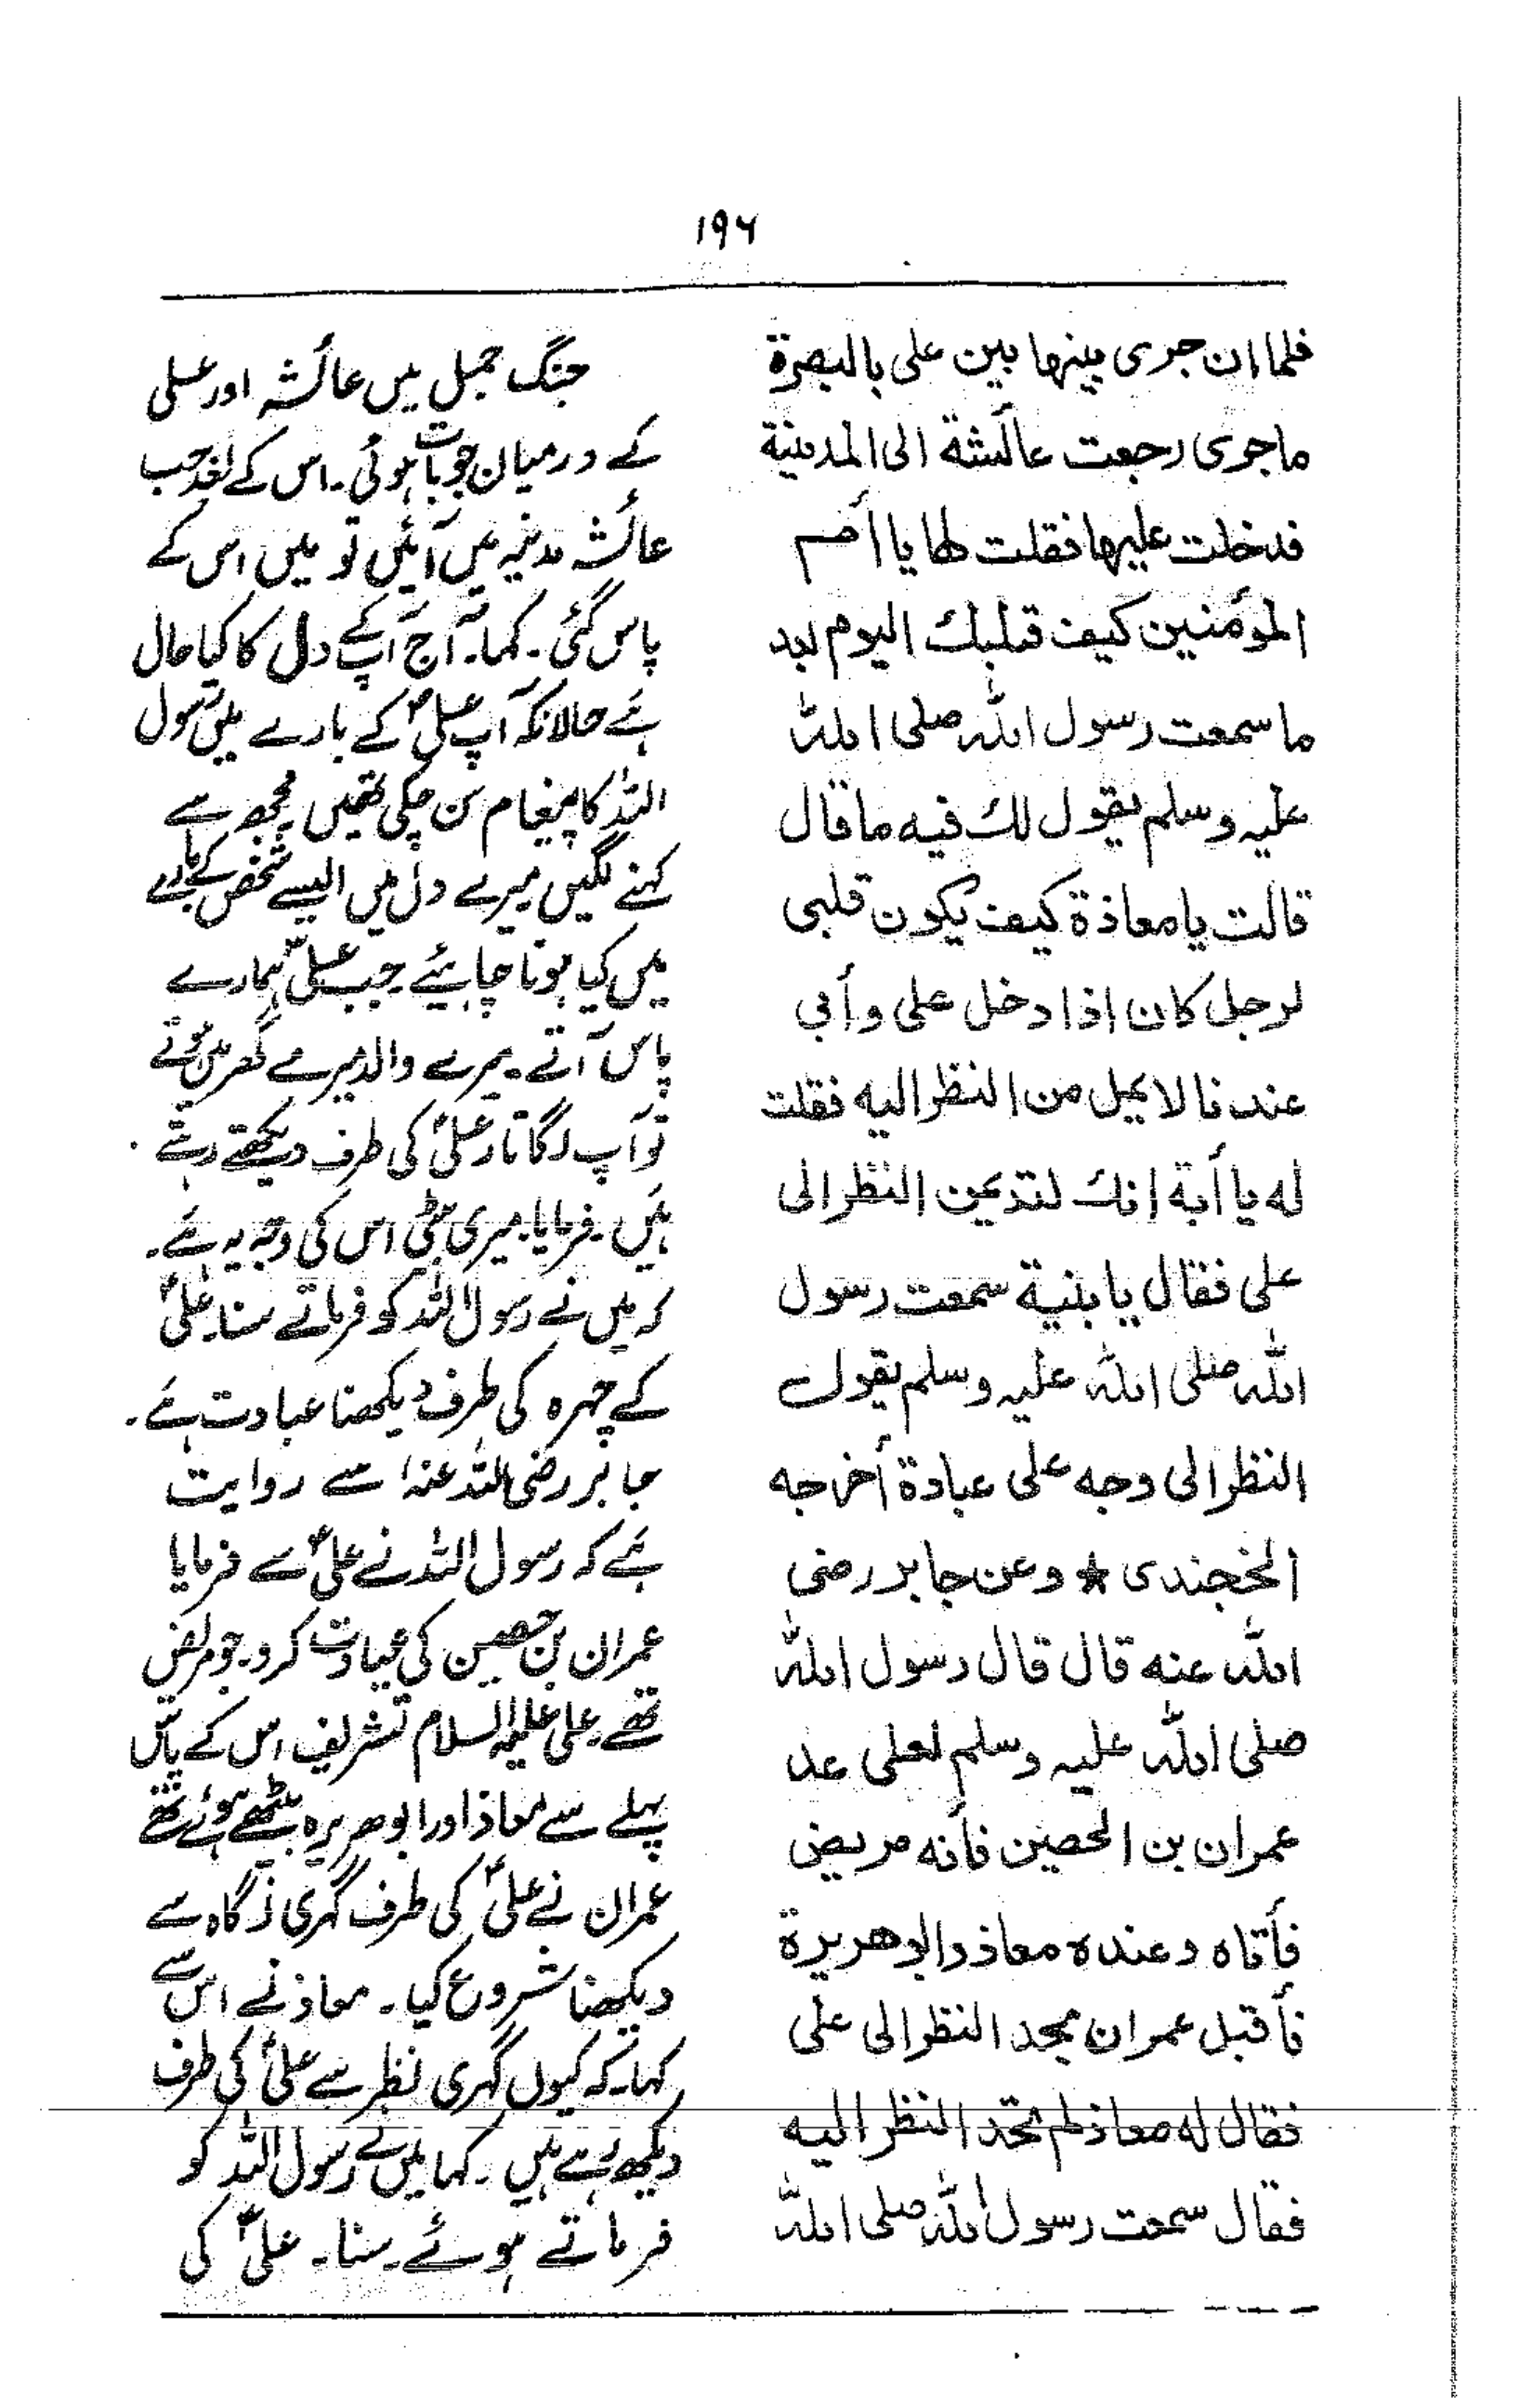 ۱۹۶
فلما ان جرى بينها بين على بالبصرة
ما جرى رجعت عائشة الى المدينة
فدخلت عليها فقلت لها يا أم
المؤمنين كيف قلبك اليوم بعد
ما سمعت رسول الله صلى الله
عليه وسلم يقول لك فيه ما قال
قالت يا معاذة كيف يكون قلبى
لرجل كان اذا دخل على وأبى
عندنا لا يمل من النظر اليه فقلت
له يا أبة انك لتديمن النظر الى
على فقال يا بنية سمعت رسول
الله صلى الله عليه وسلم يقول
النظر الى وجه على عبادة أخرجه
الخجندى ★ وعن جابر رضى
الله عنه قال قال رسول الله
صلى الله عليه وسلم لعلى عد
عمران بن الحصين فأنه مريض
فأتاه وعنده معاذ وابو هريرة
فأقبل عمران يحد النظر الى على
فقال له معاذ لم تحد النظر اليه
فقال سمعت رسول الله صلى الله
جنگ جمل میں عائشہ اور علی
کے درمیان جو بات ہوئی۔ اس کے بعد جب
عائشہ مدینہ میں آئیں تو میں اس کے
پاس گئی۔ کہا۔ آج آپ کے دل کا کیا حال
ہے حالانکہ آپ علیؑ کے بارے میں رسول
اللہ کا پیغام سن چکی تھیں۔ مجھ سے
کہنے لگیں میرے دل میں ایسے شخص کے بارے
میں کیا ہونا چاہیئے۔ جب علیؑ ہمارے
پاس آتے۔ میرے والد میرے گھر میں ہوتے
تو آپ لگاتار علیؑ کی طرف دیکھتے رہتے
ہیں۔ فرمایا۔ میری بیٹی اس کی وجہ یہ ہے۔
کہ میں نے رسول اللہ کو فرماتے سنا۔ علیؑ
کے چہرہ کی طرف دیکھنا عبادت ہے۔
جابر رضی اللہ عنہ سے روایت
ہے کہ رسول اللہ نے علیؑ سے فرمایا
عمران بن حصین کی عیادت کرو۔ جو مریض
تھے۔ علی علیہ السلام تشریف اس کے پاس
پہلے سے معاذ اور ابو ھریرہ بیٹھے ہوئے تھے
عمران نے علیؑ کی طرف گہری نگاہ سے
دیکھنا شروع کیا۔ معاذ نے اس سے
کہا۔ کہ کیوں گہری نظر سے علیؑ کی طرف
دیکھ رہے ہیں۔ کہا میں نے رسول اللہ کو
فرماتے ہوئے۔ سنا۔ علیؑ کی